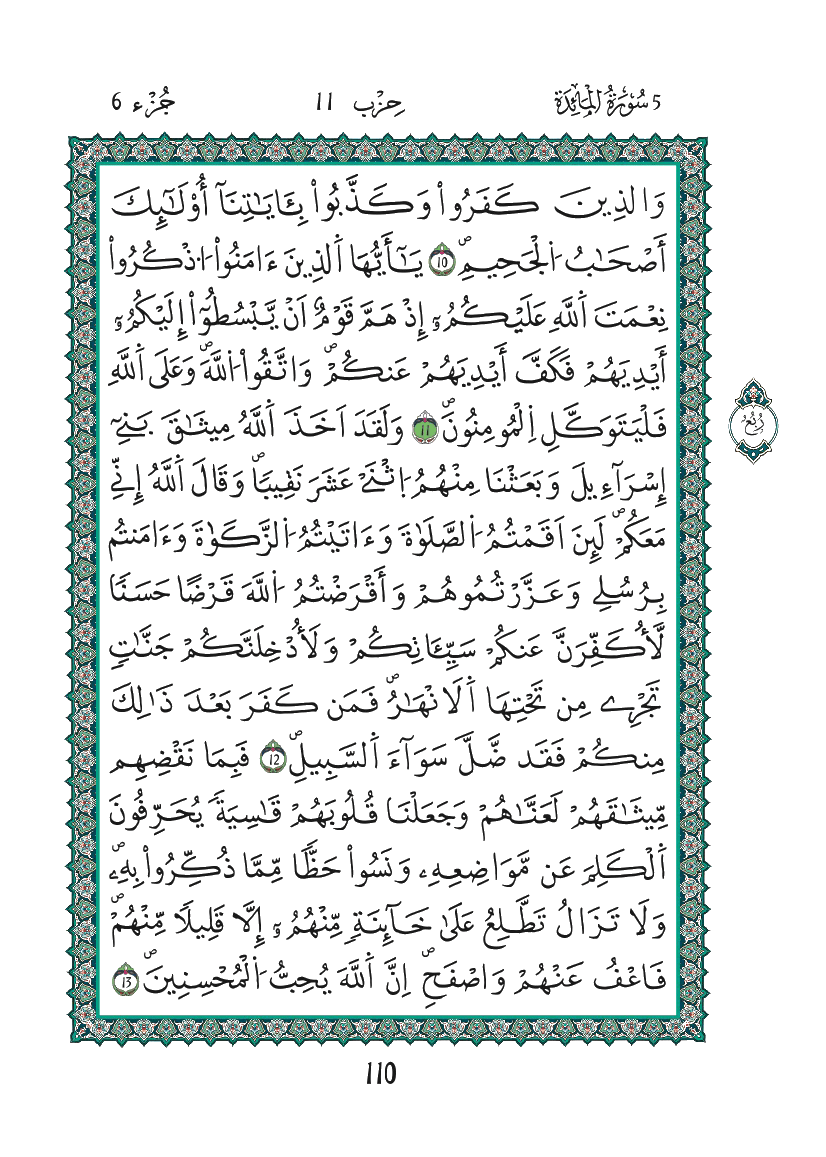 5 سُورَةُ الْمَائِدَة حِزْب 11 جُزْء 6
وَالذِينَ كَفَرُواْ وَكَذَّبُواْ بِـَٔايَٰتِنَآ أُوْلَٰٓئِكَ
أَصْحَٰبُ اُ۬لْجَحِيمِۖ 10 يَٰٓأَيُّهَا اَ۬لذِينَ ءَامَنُواْ اُ۟ذْكُرُواْ
نِعْمَتَ اَ۬للَّهِ عَلَيْكُمُۥٓ إِذْ هَمَّ قَوْمٌ اَنْ يَّبْسُطُوٓاْ إِلَيْكُمُۥٓ
أَيْدِيَهُمْ فَكَفَّ أَيْدِيَهُمْ عَنكُمْۖ وَاتَّقُواْ اُ۬للَّهَۖ وَعَلَى اَ۬للَّهِ
فَلْيَتَوَكَّلِ اِ۬لْمُومِنُونَۖ 11 وَلَقَدَ اَخَذَ اَ۬للَّهُ مِيثَٰقَ بَنِےٓ
إِسْرَآءِيلَ وَبَعَثْنَا مِنْهُمُ اُ۪ثْنَےْ عَشَرَ نَقِيباٗۖ وَقَالَ اَ۬للَّهُ إِنِّے
مَعَكُمْۖ لَئِنَ اَقَمْتُمُ اُ۬لصَّلَوٰةَ وَءَاتَيْتُمُ اُ۬لزَّكَوٰةَ وَءَامَنتُم
بِرُسُلِے وَعَزَّرْتُمُوهُمْ وَأَقْرَضْتُمُ اُ۬للَّهَ قَرْضًا حَسَنٗا
لَّأُكَفِّرَنَّ عَنكُمْ سَيِّـَٔاتِكُمْ وَلَأُدْخِلَنَّكُمْ جَنَّٰتٖ
تَجْرِے مِن تَحْتِهَا اَ۬لَانْهَٰرُۖ فَمَن كَفَرَ بَعْدَ ذَٰلِكَ
مِنكُمْ فَقَد ضَّلَّ سَوَآءَ اَ۬لسَّبِيلِۖ 12 فَبِمَا نَقْضِهِم
مِّيثَٰقَهُمْ لَعَنَّٰهُمْ وَجَعَلْنَا قُلُوبَهُمْ قَٰسِيَةٗ يُحَرِّفُونَ
اَ۬لْكَلِمَ عَن مَّوَاضِعِهِۦ وَنَسُواْ حَظّٗا مِّمَّا ذُكِّرُواْ بِهِۦۖ
وَلَا تَزَالُ تَطَّلِعُ عَلَىٰ خَآئِنَةٖ مِّنْهُمُۥٓ إِلَّا قَلِيلٗا مِّنْهُمْۖ
فَاعْفُ عَنْهُمْ وَاصْفَحِۖ إِنَّ اَ۬للَّهَ يُحِبُّ اُ۬لْمُحْسِنِينَۖ 13
رُبْع
110